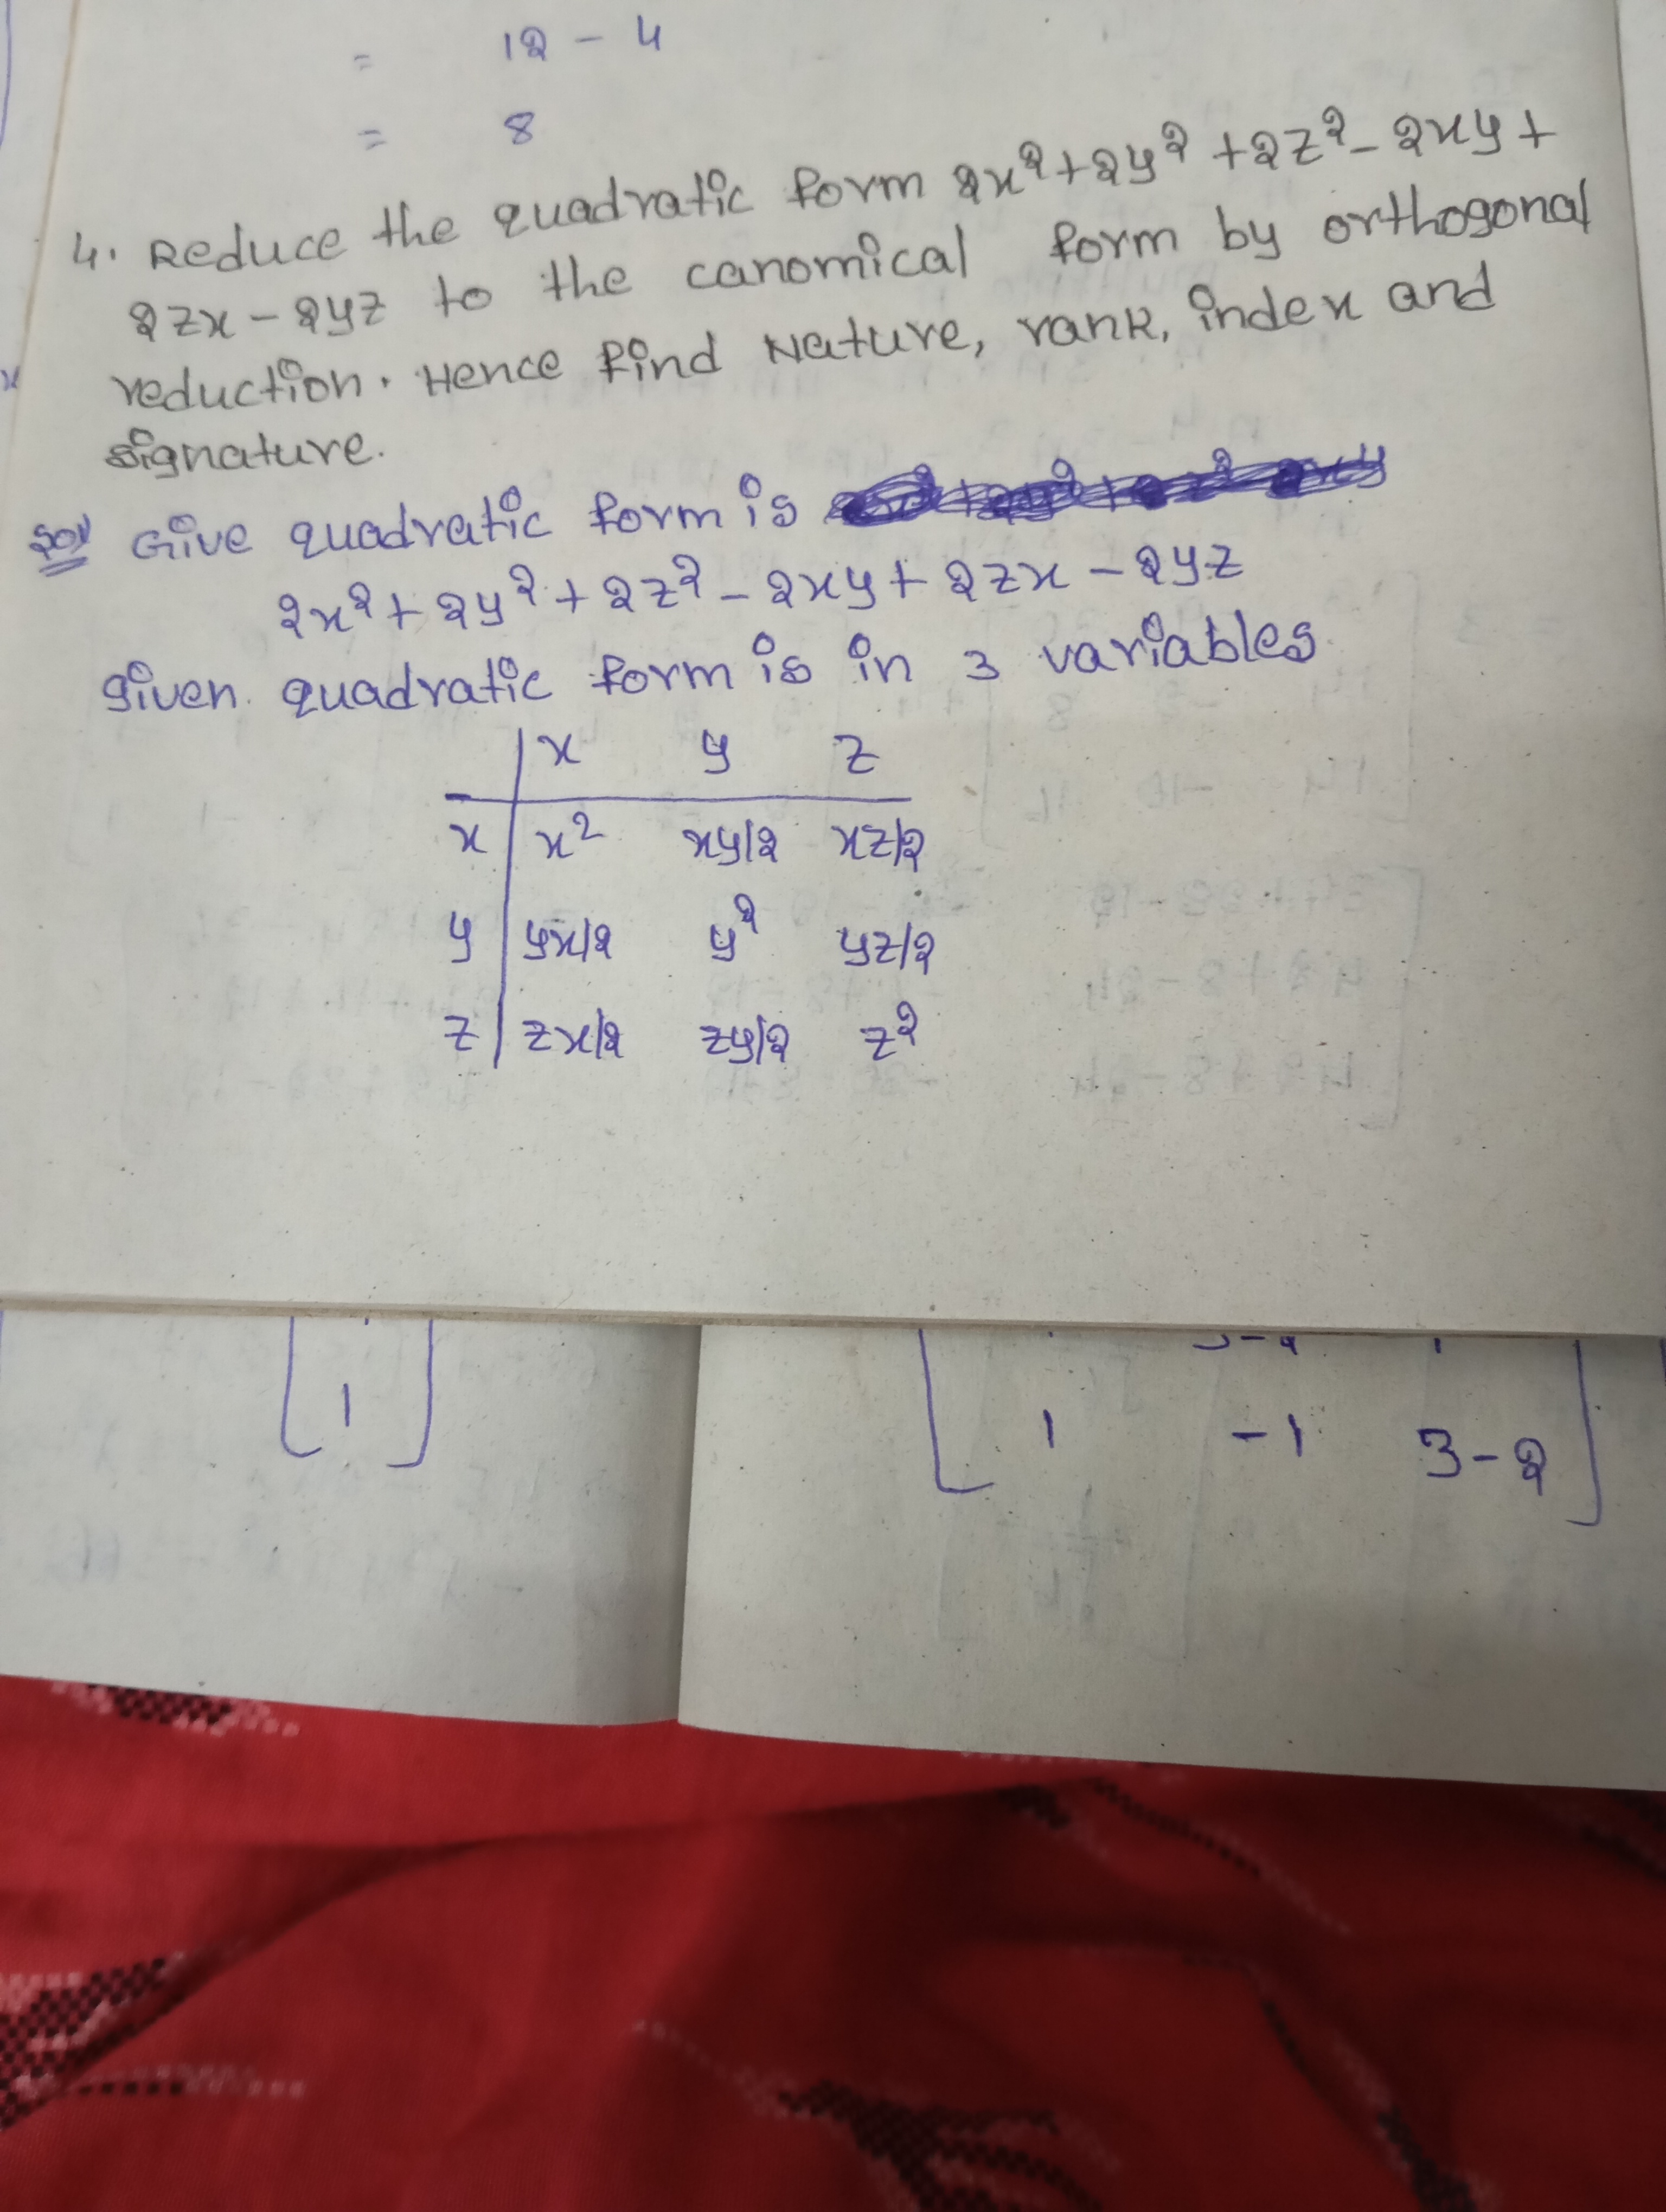 = 12 - 4
= 8
4. Reduce the quadratic form 2x² + 2y² + 2z² - 2xy +
2zx - 2yz to the canomical form by orthogonal
reduction. Hence find Nature, rank, index and
signature.
Sol Give quadratic form is
2x² + 2y² + 2z² - 2xy + 2zx - 2yz
given quadratic form is in 3 variables
x y z
x x² xy/2 xz/2
y yx/2 y² yz/2
z zx/2 zy/2 z²
1
1 -1 3-2